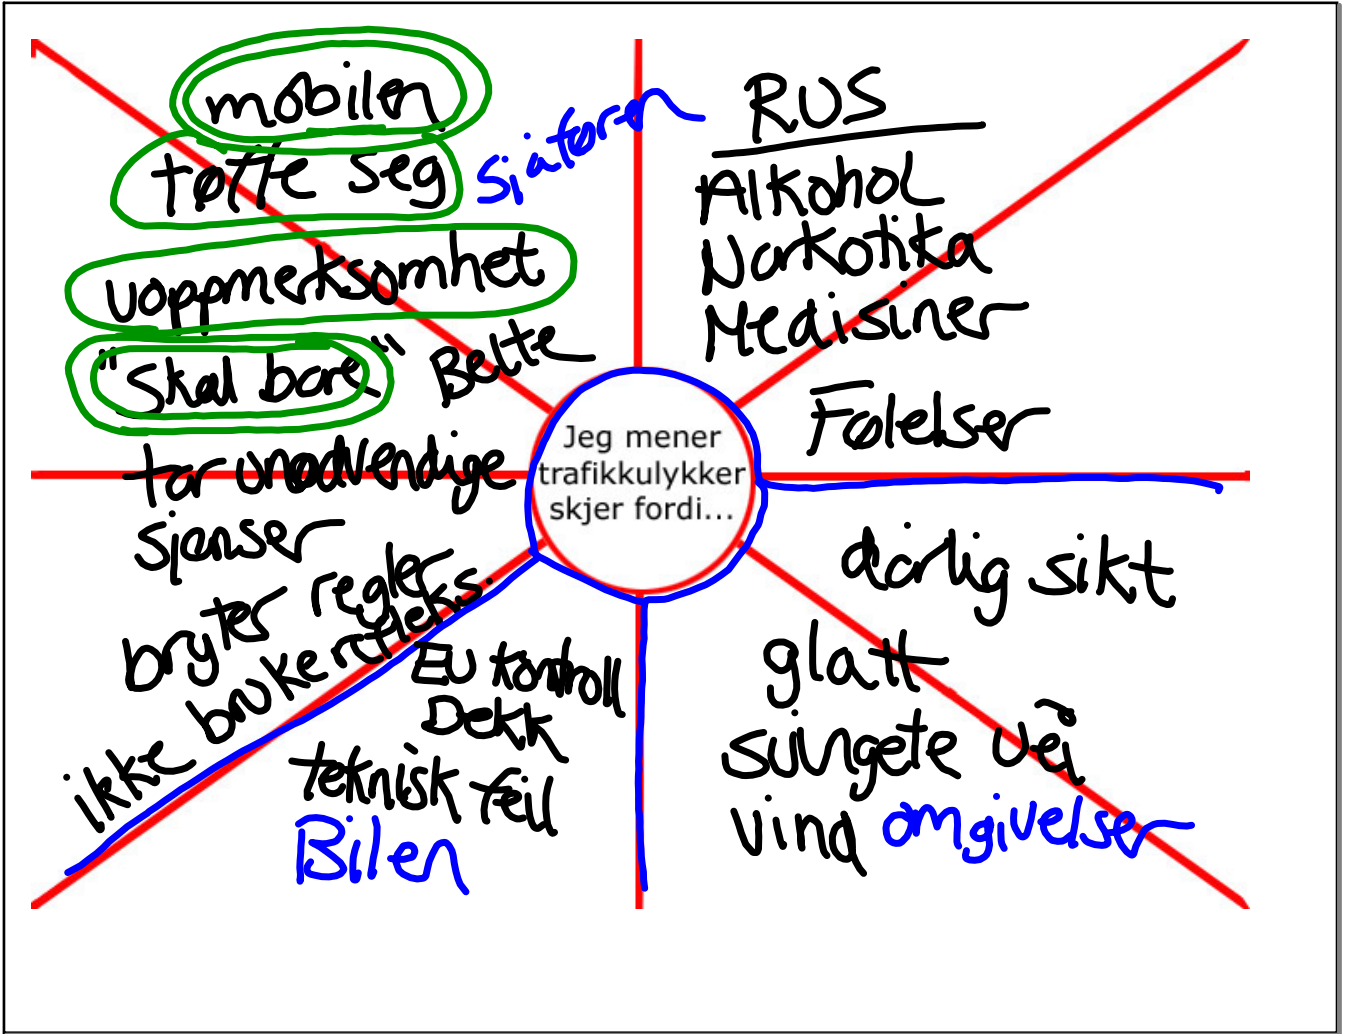 mobilen
tøffe seg
Sjåføren
uoppmerksomhet
"skal bare"
Belte
tar unødvendige
sjanser
bryter regler
ikke bruke refleks.
RUS
Alkohol
Narkotika
Medisiner
Følelser
Jeg mener
trafikkulykker
skjer fordi...
dårlig sikt
glatt
svingete vei
vind
omgivelser
EU kontroll
Dekk
teknisk feil
Bilen